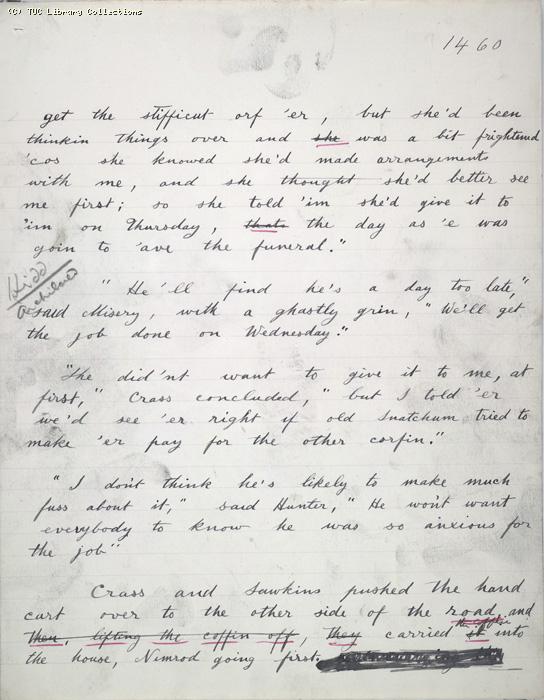 (C) TUC Library Collections
1460
get the stifficut orf 'er, but she'd been
thinkin things over and she was a bit frightened
'cos she knowed she'd made arrangements
with me, and she thought she'd better see
me first; so she told 'im she'd give it to
'im on Thursday, thats the day as 'e was
goin to 'ave the funeral."
Kidd
"He'll find he's a day too late,"
said Misery, with a ghastly grin, "We'll get
the job done on Wednesday."
"She did'nt want to give it to me, at
first," Crass concluded, "but I told 'er
we'd see 'er right if old Snatchum tried to
make 'er pay for the other corfin."
"I don't think he's likely to make much
fuss about it," said Hunter, "He won't want
everybody to know he was so anxious for
the job"
Crass and Sawkins pushed the hand
cart over to the other side of the road and
the coffin
then, lifting the coffin off, they carried it into
the house, Nimrod going first.